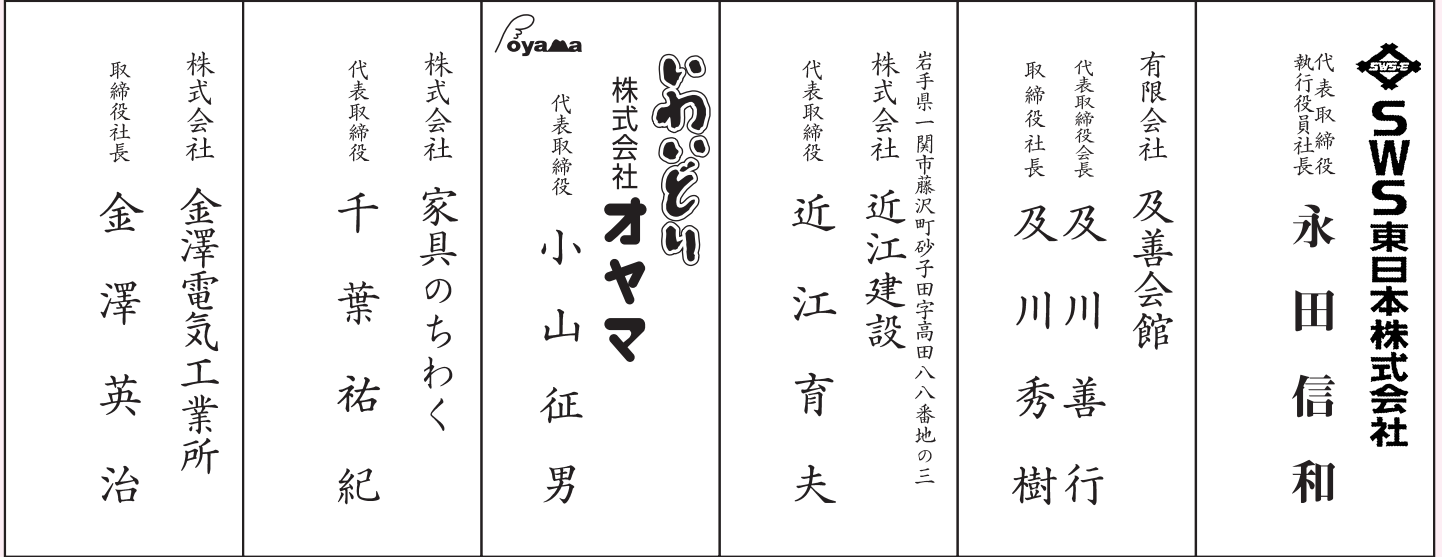 SWS-E
SWS東日本株式会社
代表取締役
執行役員社長
永田信和
有限会社 及善会館
代表取締役会長 及川善行
取締役社長 及川秀樹
岩手県一関市藤沢町砂子田字高田八八番地の三
株式会社 近江建設
代表取締役 近江育夫
いわいどり
株式会社オヤマ
oyama
代表取締役 小山征男
株式会社 家具のちわく
代表取締役 千葉祐紀
株式会社 金澤電気工業所
取締役社長 金澤英治